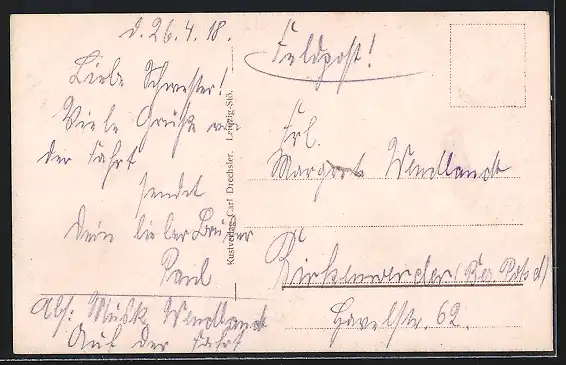 d. 26.4.18.
Liebe Schwester!
Viele Grüße von
der Fahrt
sendet
Dein lieber Bruder
Paul
Abs: Musk Wendland
Auf der Fahrt
Kunstverlag Carl Drechsler, Leipzig-Stö.
Feldpost!
Frl.
Margot Wendland
Havelstr. 62.